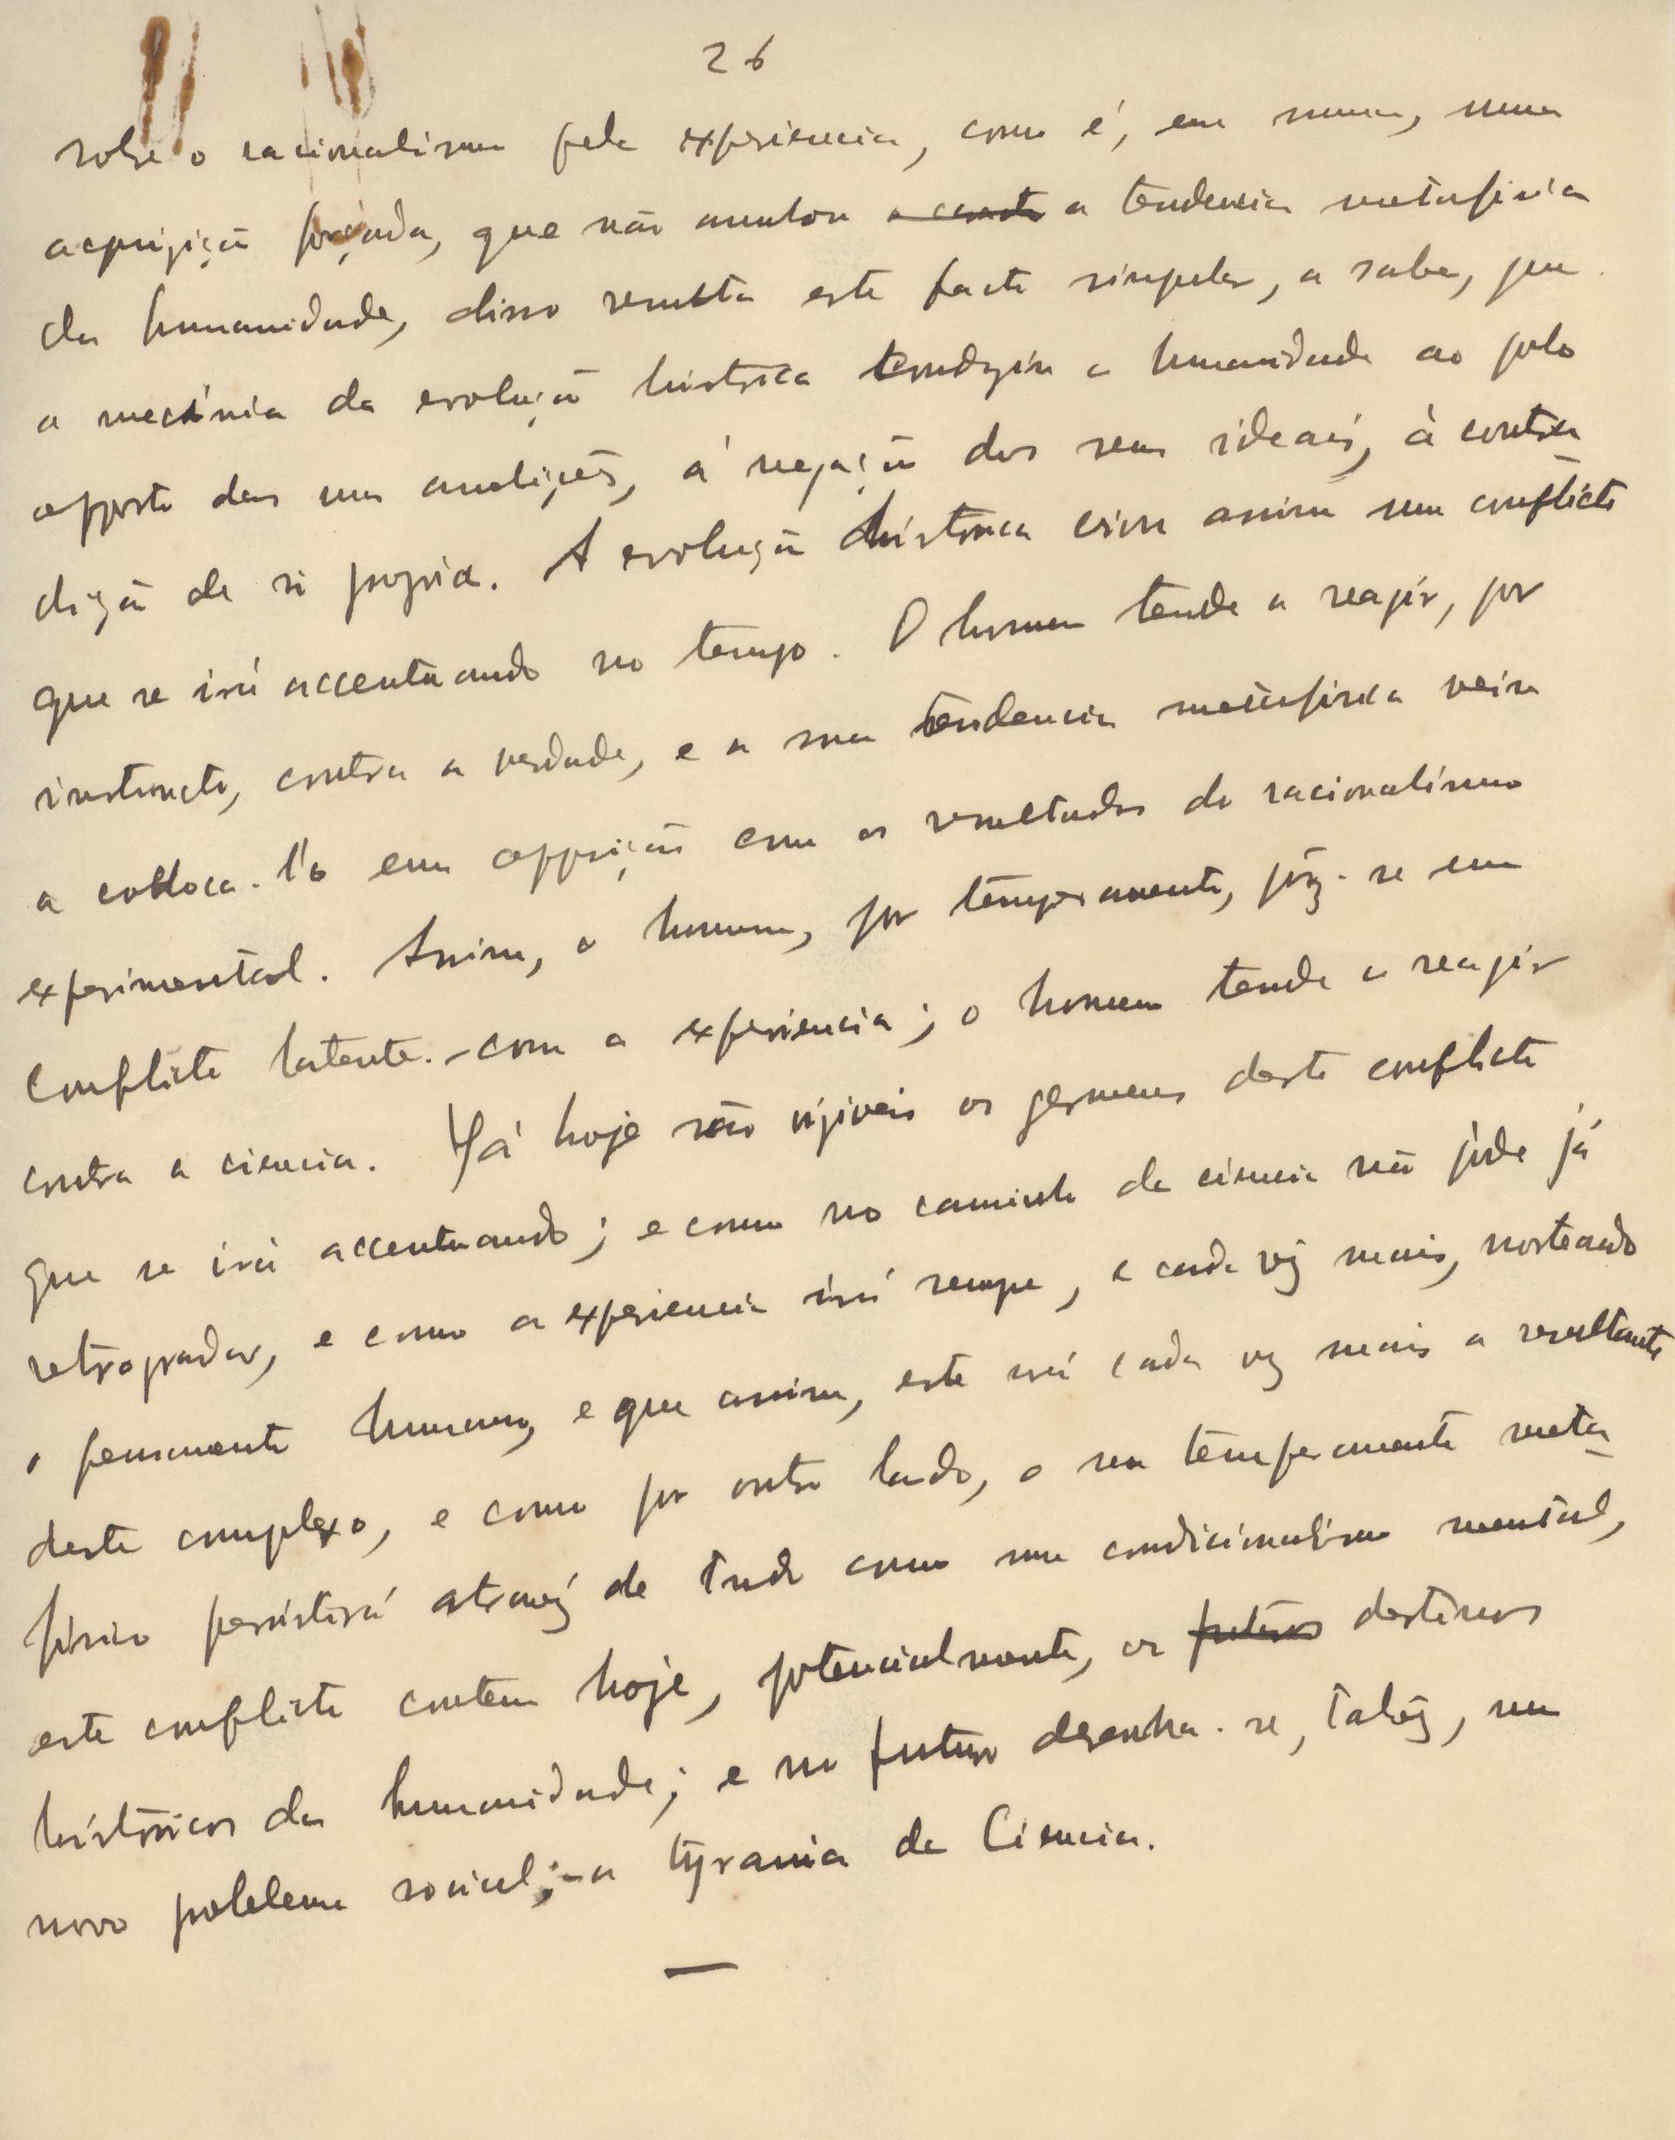 26
sobre o racionalismo pela experiencia, como é, em summa, uma
acquizição forçada, que não annulou a tendencia metafisica
da humanidade, disso resulta este facto singular, a saber, que
a mecânica da evolução historica conduziu a humanidade ao polo
opposto das suas ambições, á negação dos seus ideais, á contra-
dição de si propria. A evolução historica criou assim um conflicto
que se irá accentuando no tempo. O homem tende a reagir, por
instincto, contra a verdade, e a sua tendencia metafisica veiu
a colloca-l'o em opposição com os resultados do racionalismo
experimental. Assim, o homem, por temperamento, põz-se em
conflicto latente.-com a experiencia; o homem tende a reagir
contra a ciencia. Já hoje são vizíveis os germens deste conflicto
que se irá accentuando; e como no caminho da ciencia não póde já
retrogradar, e como a experiencia irá sempre, e cada vez mais, norteando
o pensamento humano, e que assim, este será cada vez mais a resultante
deste complexo, e como por outro lado, o seu temperamento meta-
físico persistirá atravez de tudo como um condicionalismo mental,
este conflicto contem hoje, potencialmente, os futuros destinos
históricos da humanidade; e no futuro desenha-se, talvez, um
novo poblema social;-a tyrania da Ciencia.
—